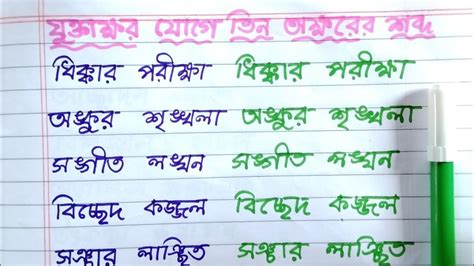 যুক্তাক্ষর যোগে তিন অক্ষরের শব্দ
ধিক্কার পরীক্ষা ধিক্কার পরীক্ষা
অঙ্কুর শৃঙ্খলা অঙ্কুর শৃঙ্খলা
সঙ্গীত লঙ্ঘন সঙ্গীত লঙ্ঘন
বিচ্ছেদ কজ্জল বিচ্ছেদ কজ্জল
সঞ্চার লাঞ্ছিত সঞ্চার লাঞ্ছিত